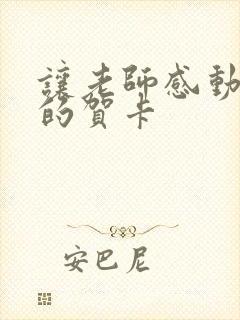 讓老師感動
的賀卡
安巴尼